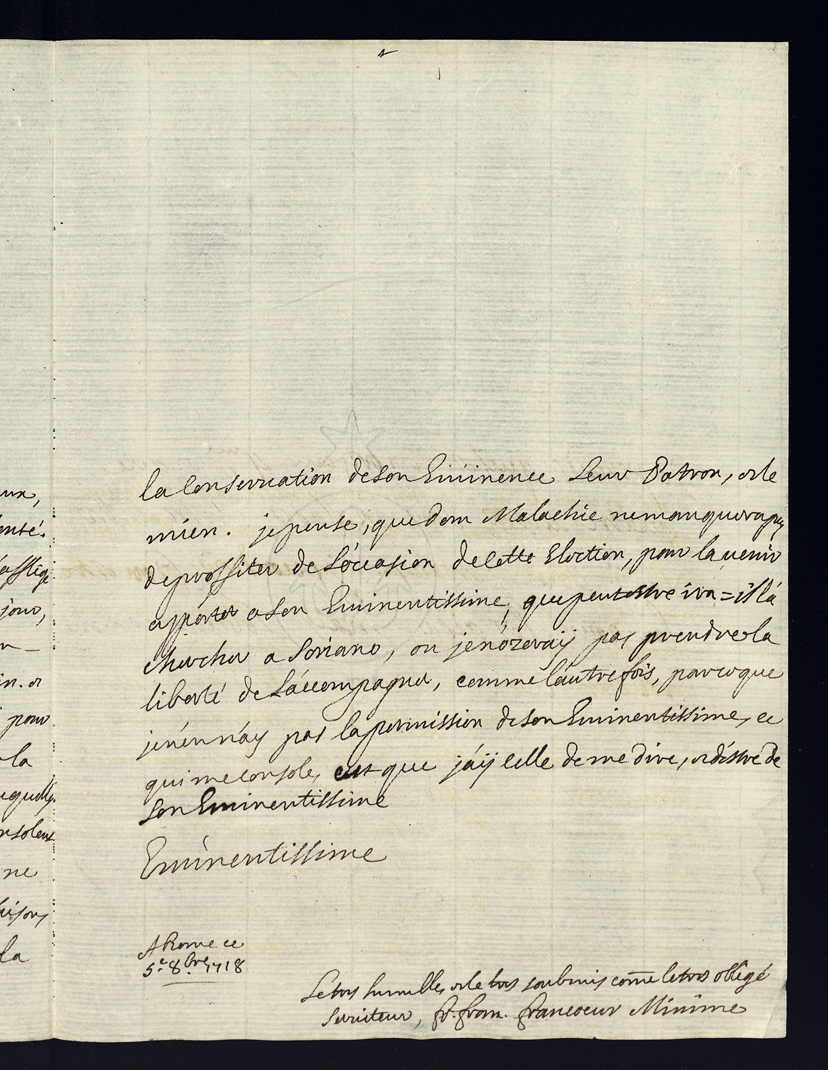 la conservation de son Eminence Leur Patron, et le
mien. je pense, que dom Malachie ne manquera pas
de proffiter de L'occasion de cette Election, pour la venir
apporter a son Eminentissime, que peut estre ira=il la
chercher a Soriano, ou je n'ózeraÿ pas prendre la
liberté de L'accompagner, comme l'autre fois, parce que
je n'en n'aÿ pas la permission de son Eminentissime, ce
qui me console, est que j'aÿ celle de me dire, et destre de
son Eminentissime
Eminentissime
A Rome ce
5.e 8.bre 1718
Le tres humble, et le tres soubmis come le tres obligé
Serviteur, fr. fran. francoeur Minime